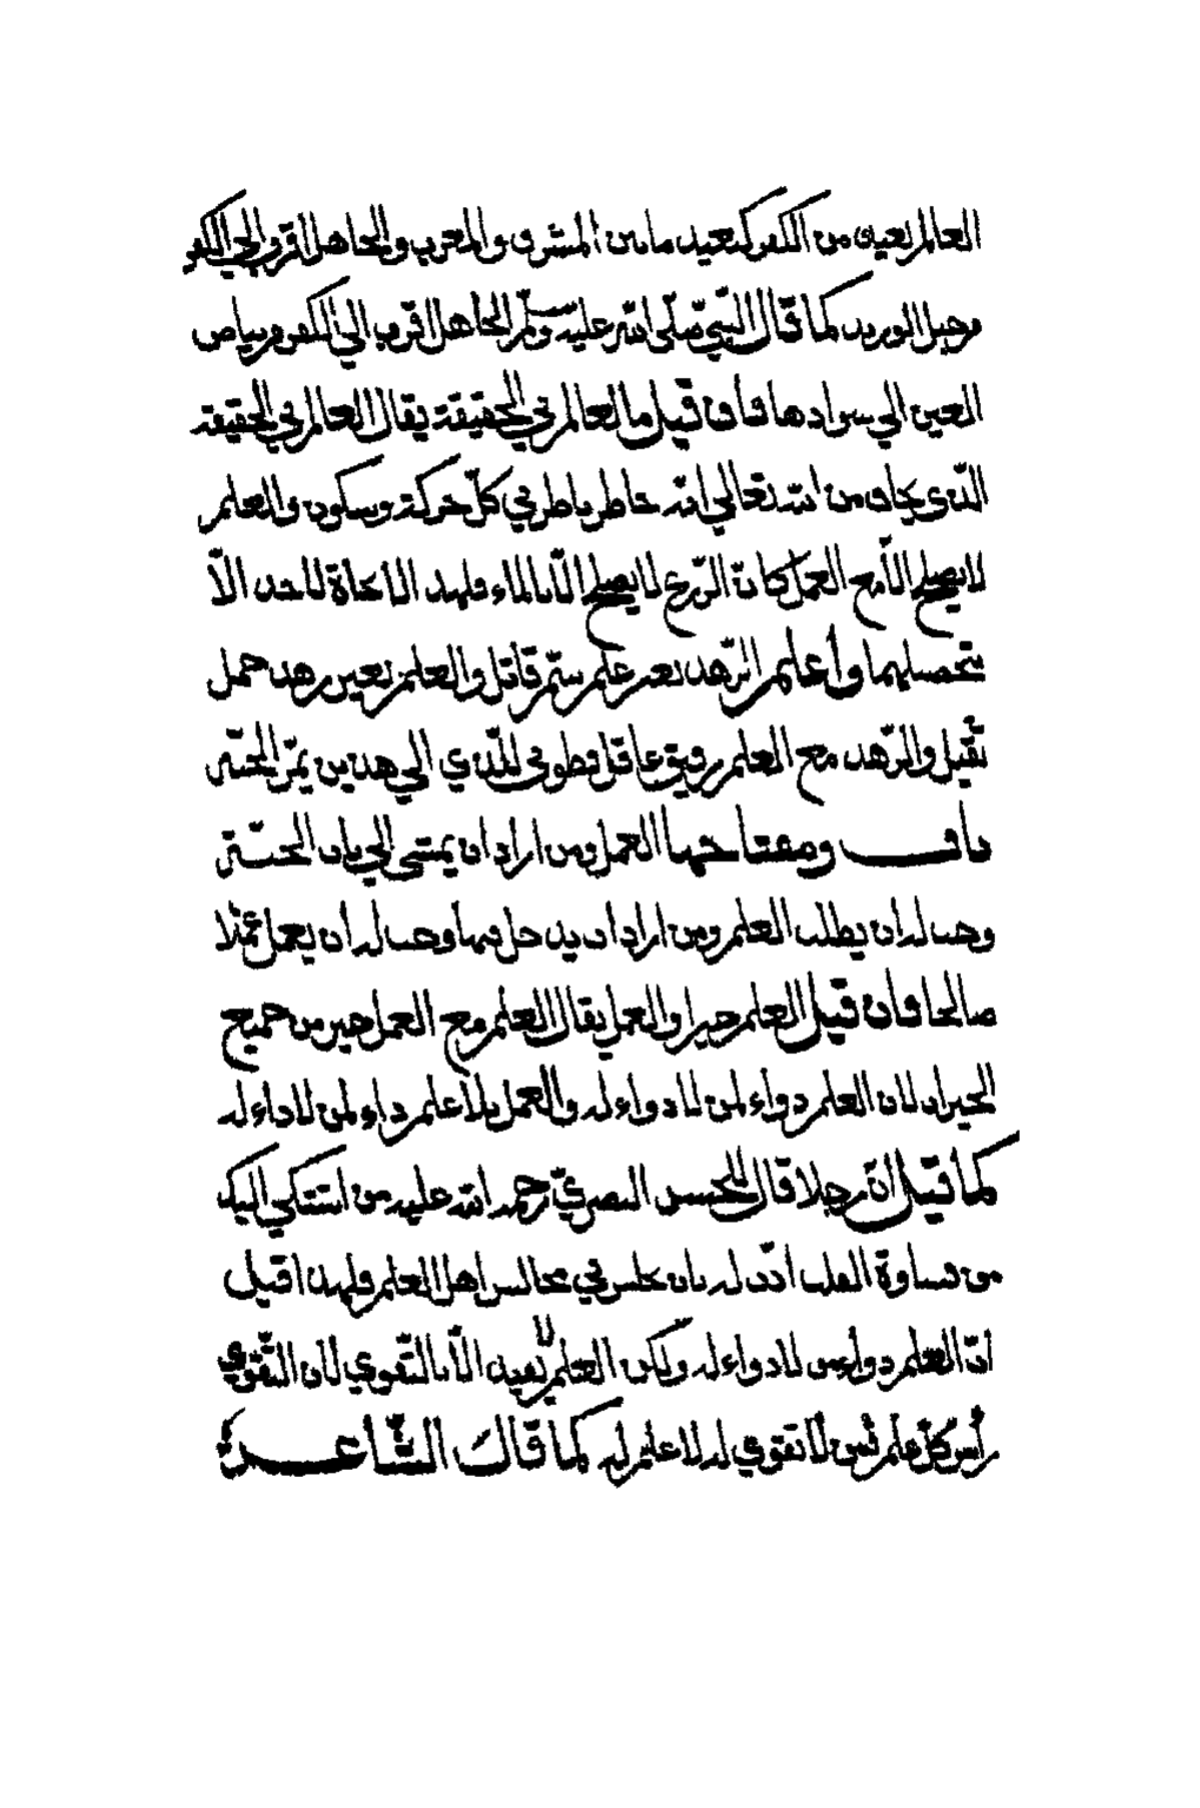 العالم بعيد من الكفر كبعيد ما بين المشرق والمغرب والجاهل اقرب الي الكفر
من حبل الوريد كما قال النبي صلى الله عليه وسلم الجاهل اقرب الي الكفر من بياض
العين الي سوادها فان قيل ما العالم في الحقيقة يقال العالم في الحقيقة
الذي يخاف من الله تعالي انه حاطر ناظر في كل حركة وسكون والعلم
لا يصلح الا مع العمل كما ان الزرع لا يصلح الا بالماء فلهذا لا نجاة لاحد الا
بتحصيلهما وأعلم الزهد بغير علم سم قاتل والعلم بغير زهد حمل
ثقيل والزهد مع العلم رفيق عاقل فطوبى للذي الي هذين يمر الجنة
باب ومفتاحها العمل ومن اراد ان يمشى الي باب الجنة
وجب له أن يطلب العلم ومن اراد ان يدخل فيها وجب له أن يعمل عملا
صالحا فان قيل العلم خير او العمل يقال العلم مع العمل خير من جميع
الخيرات لان العلم دواء لمن لا دواء له والعمل بلا علم داء لمن لا داء له
كما قيل ان رجلا قال للحسن البصري رحمة الله عليه من اشتكي اليك
من قساوة القلب ادبه بان جلس في مجالس اهل العلم فلهذا قيل
ان العلم دواء من لا دواء له ولكن العلم لا يفيد الا بالتقوي لان التقوي
رأس كل علم فمن لا تقوي له لا علم له كما قال الشاعر